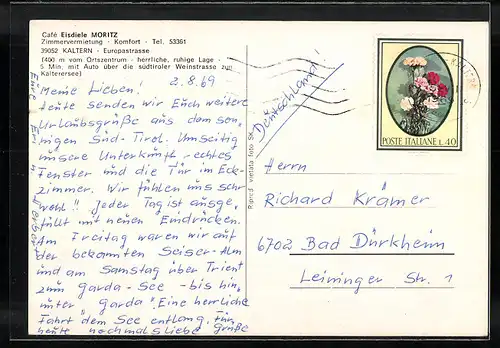 Café Eisdiele MORITZ
Zimmervermietung - Komfort - Tel. 53361
39052 KALTERN - Europastrasse
(400 m vom Ortszentrum - herrliche, ruhige Lage -
5 Min. mit Auto über die südtiroler Weinstrasse zum
Kalterersee)
2.8.69
Meine Lieben!
heute senden wir Euch weitere
Urlaubsgrüße aus dem son-
nigen Süd-Tirol. Umseitig
unsere Unterkunft - rechtes
Fenster und die Tür im Eck-
zimmer. Wir fühlen uns sehr
wohl! Jeder Tag ist ausge-
füllt mit neuen Eindrücken.
Am Freitag waren wir auf
der bekannten Seiser-Alm
und am Samstag über Trient
zum Garda-See - bis hin-
unter "Garda". Eine herrliche
Fahrt dem See entlang. Für
heute nochmals liebe Grüße
Eure
Riprod. vietata foto
(Deutschland)
POSTE ITALIANE L. 40
Herrn
Richard Krämer
6702 Bad Dürkheim
Leininger Str. 1